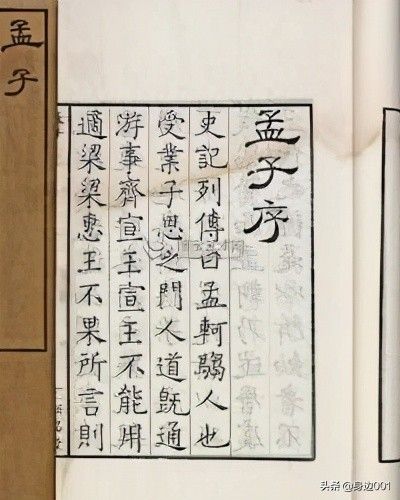 孟子序
史記列傳曰孟軻騶人也
受業子思之門人道旣通
游事齊宣王宣王不能用
適梁梁惠王不果所言則
孟子
头条 @身边001